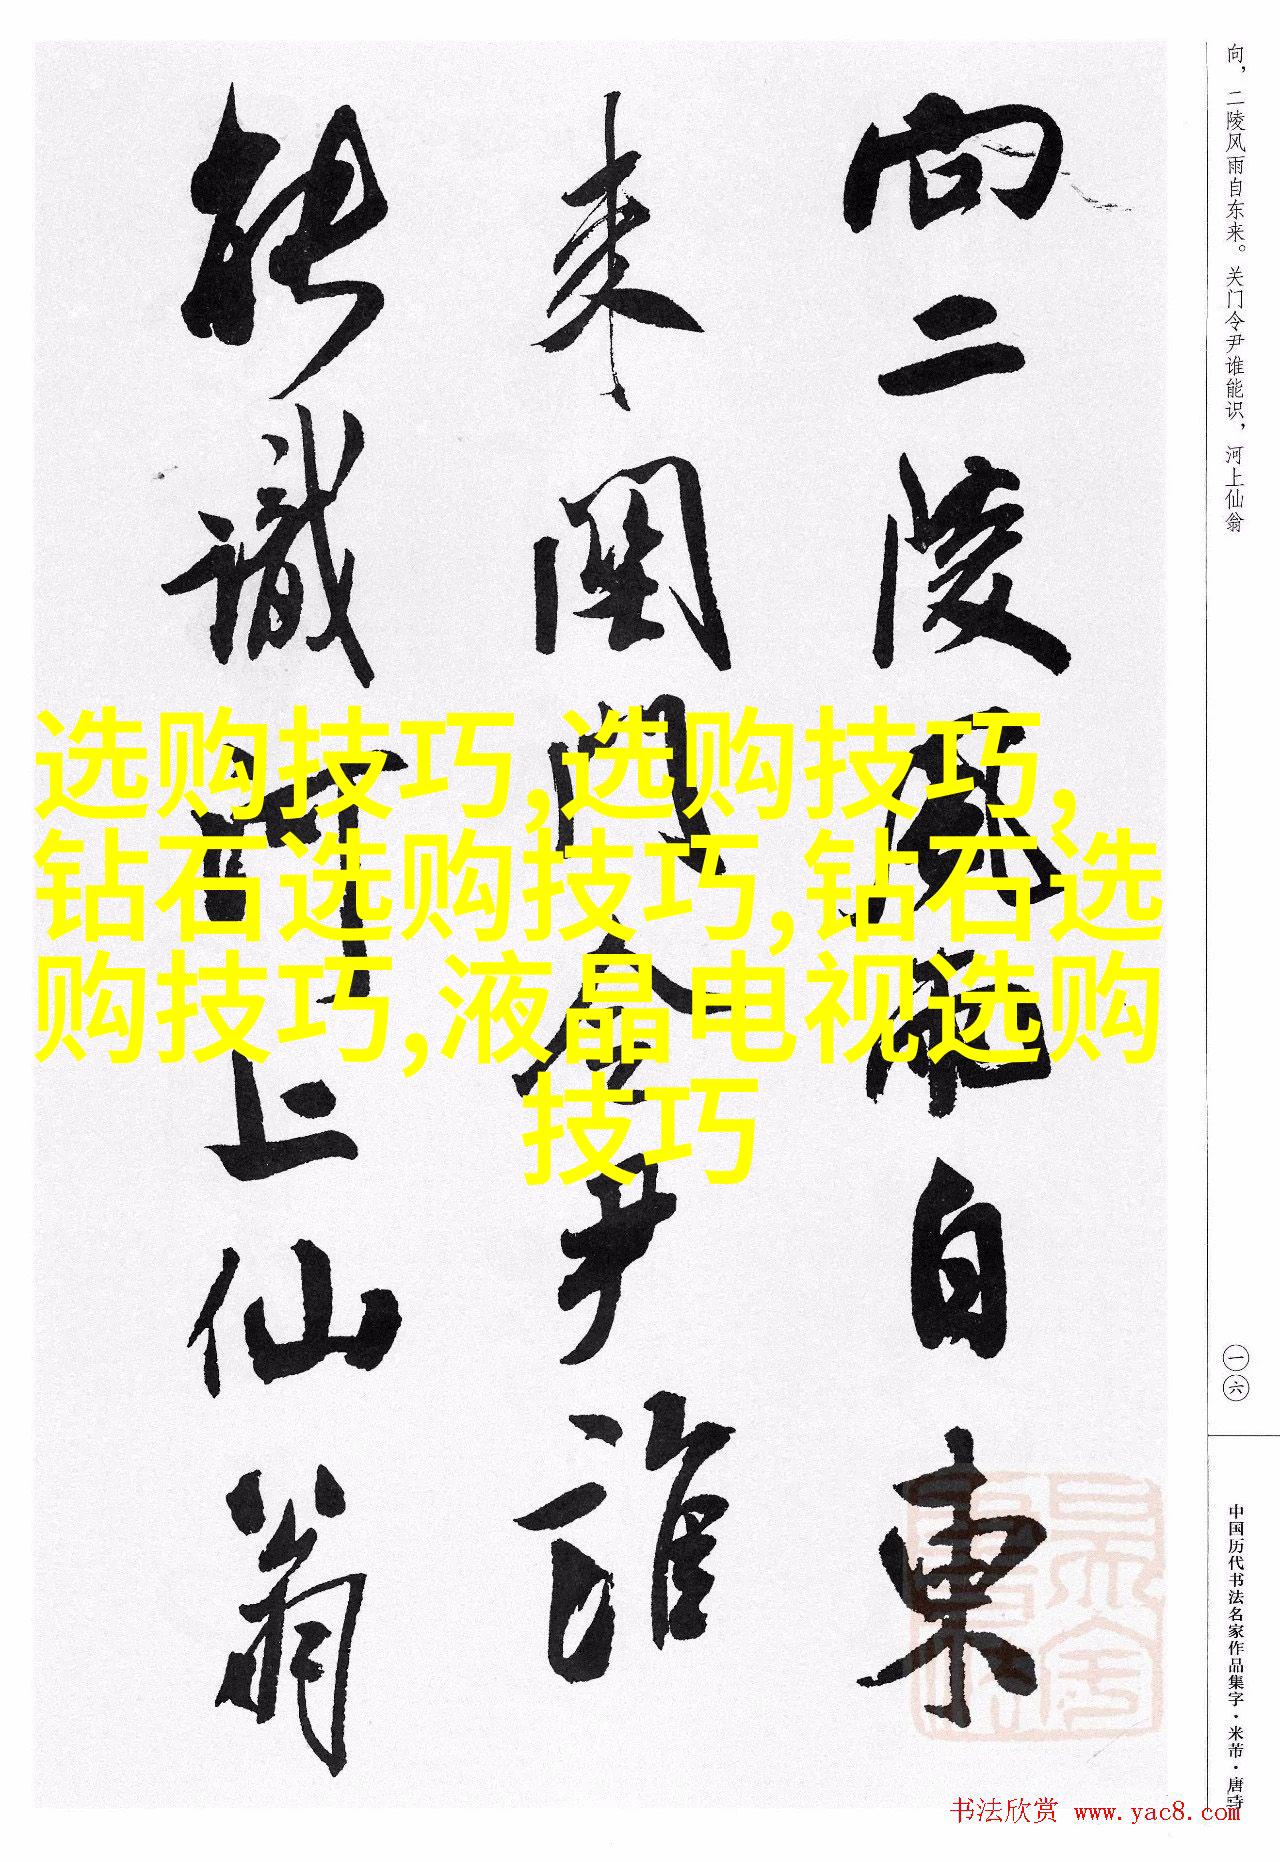 向，二陵风雨自东来。关门令尹谁能识，河上仙翁
一六
中国历代书法名家作品集字·米芾·唐诗
向二陵風雨自東
来関門令尹誰
能識河上仙翁
选购技巧,选购技巧,
钻石选购技巧,钻石选
购技巧,液晶电视选购
技巧
书法欣赏 www.yac8.com